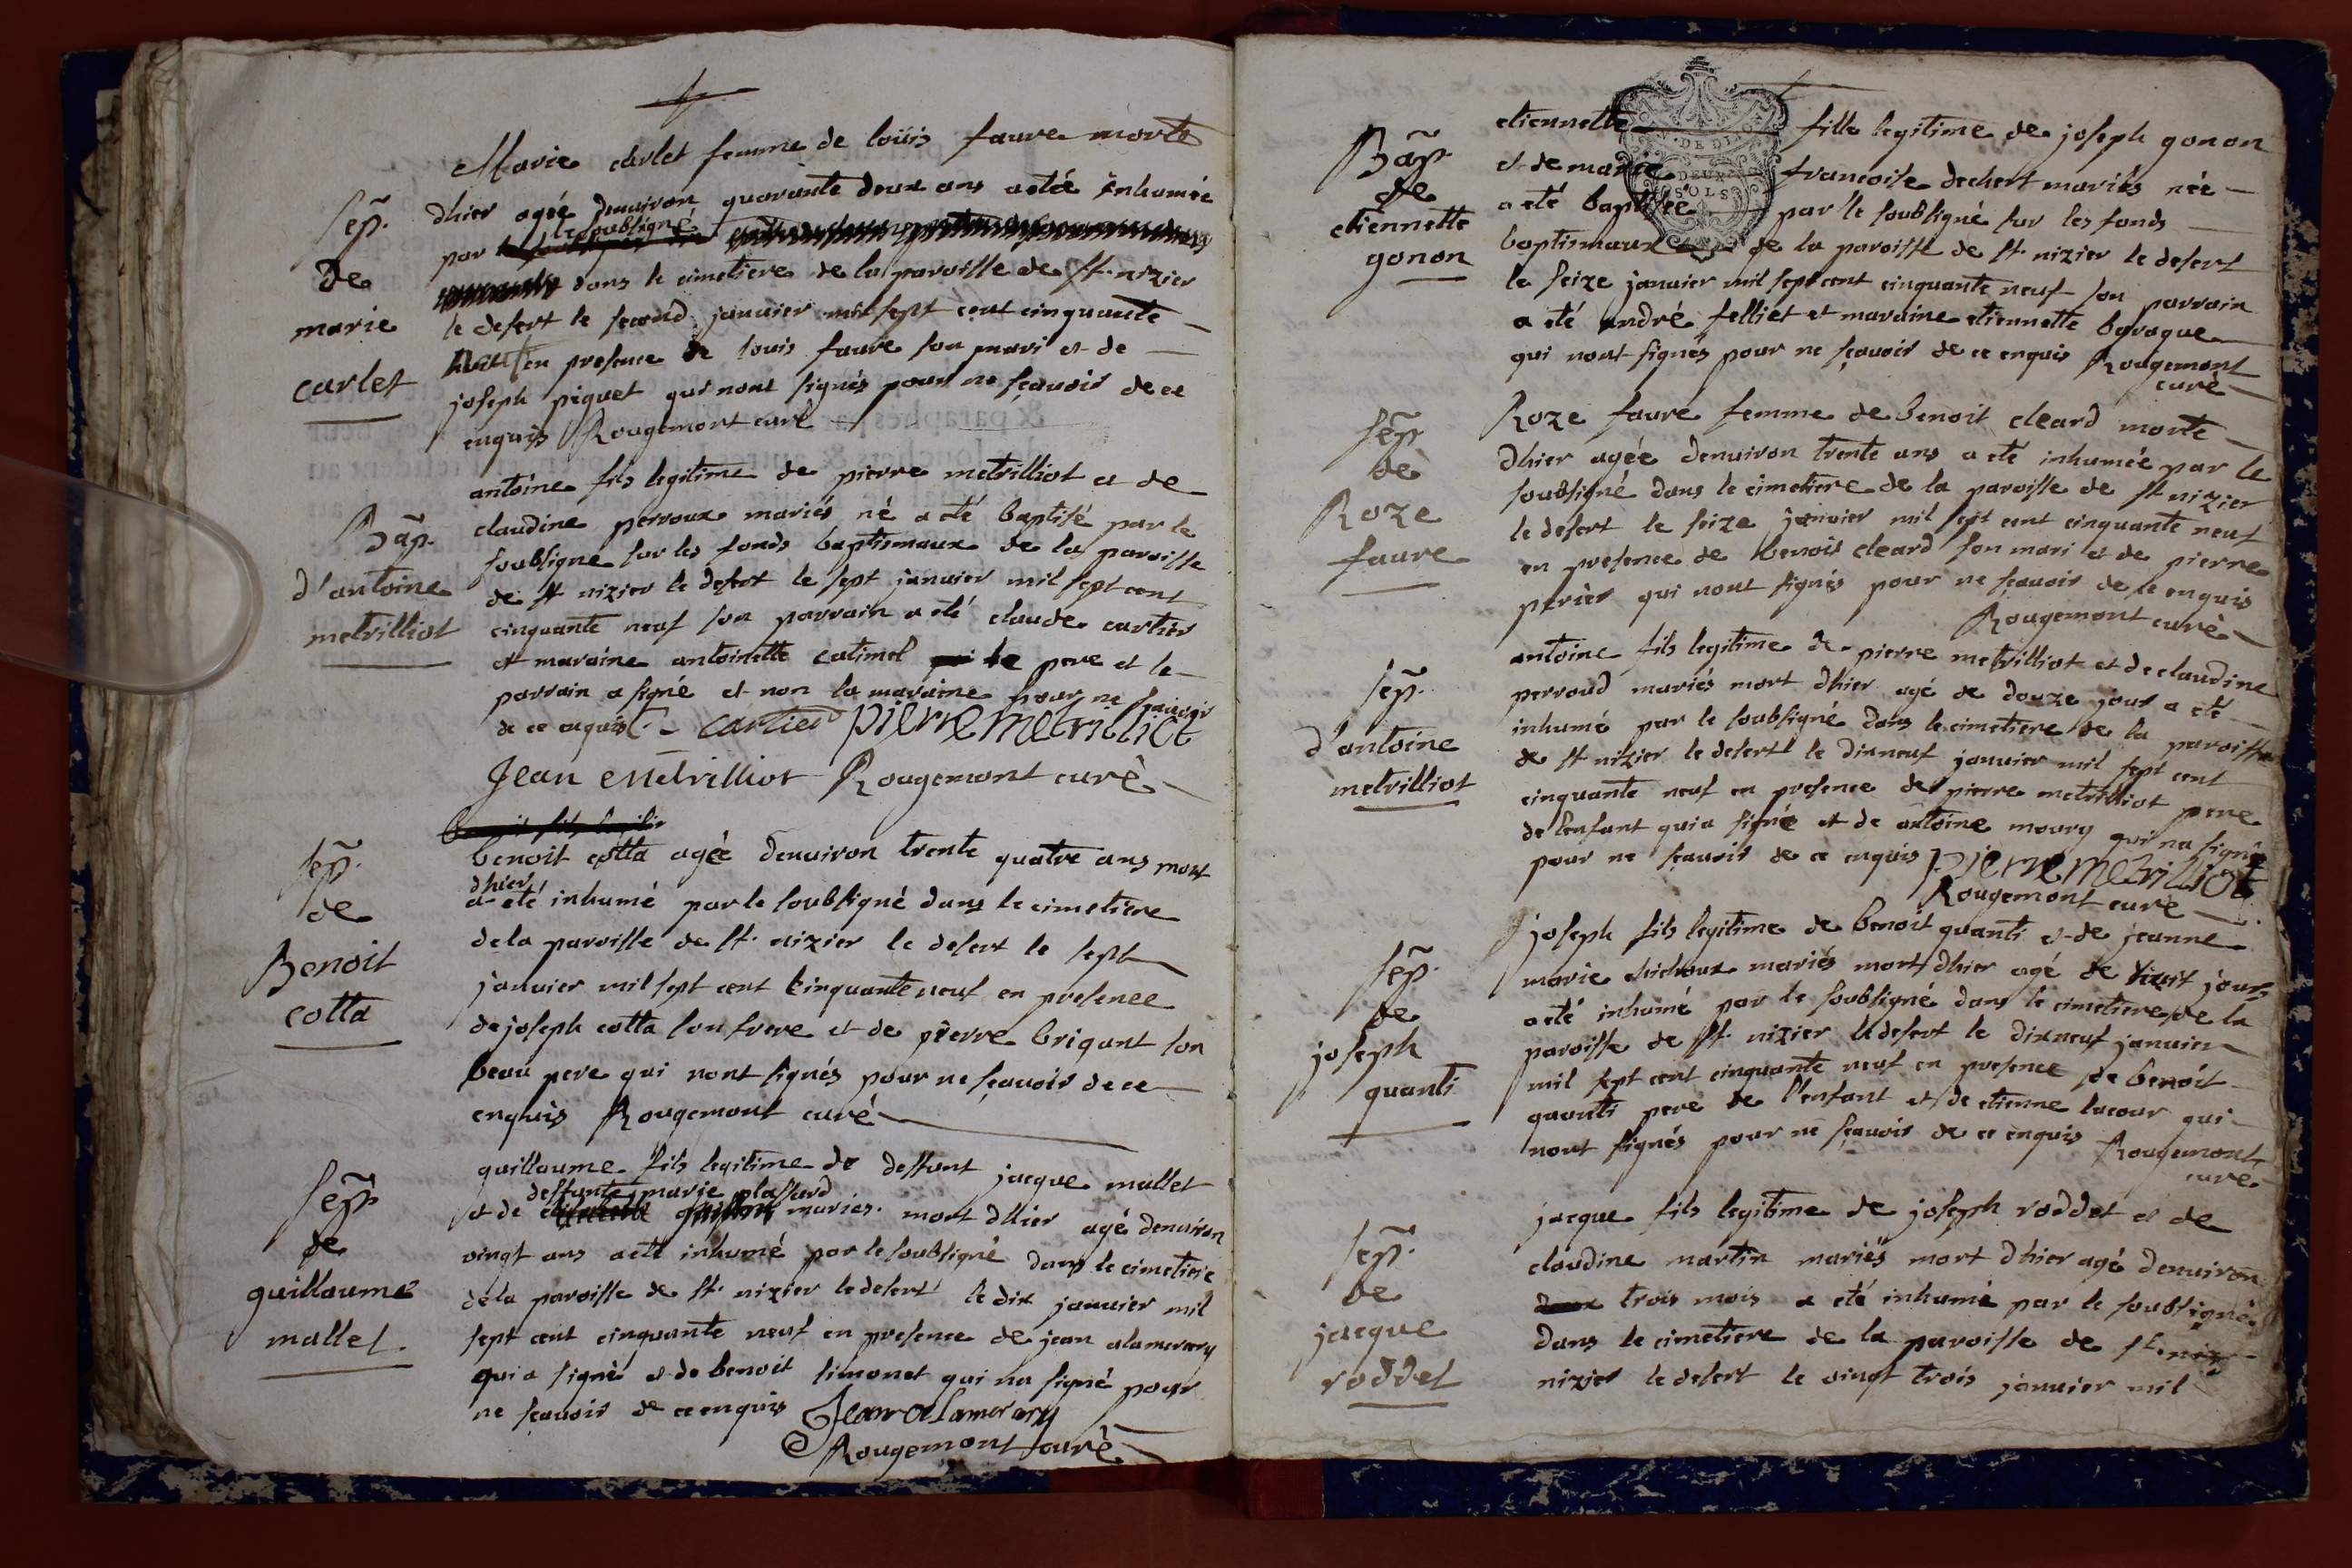 Sep.
de
marie
carlet
Marie carlet femme de loüis faure morte
dhier agée denuiron quarante deux ans a etée inhumée
par le soubsigné
dans le cimetiere de la paroisse de St. nizier
le desert le second januier mil sept cent cinquante
neuf en presence de louis faure son mari et de
joseph piquet qui nont signés pour ne sçauoir de ce
enquis Rougemont curé
Bap.
d'antoine
metrilliot
antoine fils legitime de pierre metrilliot et de
claudine perroux mariés né a eté baptisé par le
soubsigné sur les fonds baptismaux de la paroisse
de St nizier le desert le sept januier mil sept cent
cinquante neuf son parrain a eté claude cartier
et maraine antoinette catimel le pere et le
parrain a signé et non la maraine pour ne sçauoir
de ce enquis C. Cartier pierre metrilliot
Jean Metrilliot Rougemont curé
Sep.
de
Benoit
cotta
benoit cotta agée denuiron trente quatre ans mort
dhier
a eté inhumé par le soubsigné dans le cimetiere
de la paroisse de St. nizier le desert le sept
januier mil sept cent cinquante neuf en presence
de joseph cotta son frere et de pierre brigant son
beau pere qui nont signés pour ne sçauoir de ce
enquis Rougemont curé
Sep.
de
guillaume
mallet
guillaume fils legitime de deffunt jacque mallet
deffunte marie plassard
et de mariés mort dhier agé denuiron
vingt ans a eté inhumé par le soubsigné dans le cimetiere
de la paroisse de St. nizier le desert le dix januier mil
sept cent cinquante neuf en presence de jean alamercery
qui a signé et de benoit simonet qui na signé pour
ne sçauoir de ce enquis Jean alamercery
Rougemont curé
Bap.
de
etiennette
gonon
etiennette fille legitime de joseph gonon
et de marie francoise dechert mariés née
a eté baptisée par le soubsigné sur les fonds
baptismaux de la paroisse de St. nizier le desert
le seize januier mil sept cent cinquante neuf son parrain
a eté andré felliet et maraine etiennette baraque
qui nont signés pour ne sçauoir de ce enquis Rougemont
curé
DE DIJON
DEUX
SOLS
Sep.
de
Roze
faure
Roze faure femme de benoit cleard morte
dhier agée denuiron trente ans a eté inhumée par le
soubsigné dans le cimetiere de la paroisse de St nizier
le desert le seize januier mil sept cent cinquante neuf
en presence de benoit cleard son mari et de pierre
perier qui nont signés pour ne sçauoir de ce enquis
Rougemont curé
Sep.
d'antoine
metrilliot
antoine fils legitime de pierre metrilliot et de claudine
perroud mariés mort dhier agé de douze jour a eté
inhumé par le soubsigné dans le cimetiere de la paroisse
de St nizier le desert le dixneuf januier mil sept cent
cinquante neuf en presence de pierre metrilliot pere
de lenfant qui a signé et de antoine moury qui na signé
pour ne sçauoir de ce enquis pierre metrilliot
Rougemont curé
Sep.
de
joseph
quanti
joseph fils legitime de benoit quanti et de jeanne
marie chichoux mariés mort dhier agé de huit jours
a eté inhumé par le soubsigné dans le cimetiere de la
paroisse de St. nizier le desert le dixneuf januier
mil sept cent cinquante neuf en presence de benoit
quanti pere de l'enfant et de etienne lacour qui
nont signés pour ne sçauoir de ce enquis Rougemont
curé
Sep.
de
jacque
roddet
jacque fils legitime de joseph roddet et de
claudine martin mariés mort dhier agé denuiron
trois mois a eté inhumé par le soubsigné
dans le cimetiere de la paroisse de St.
nizier le desert le vingt trois januier mil